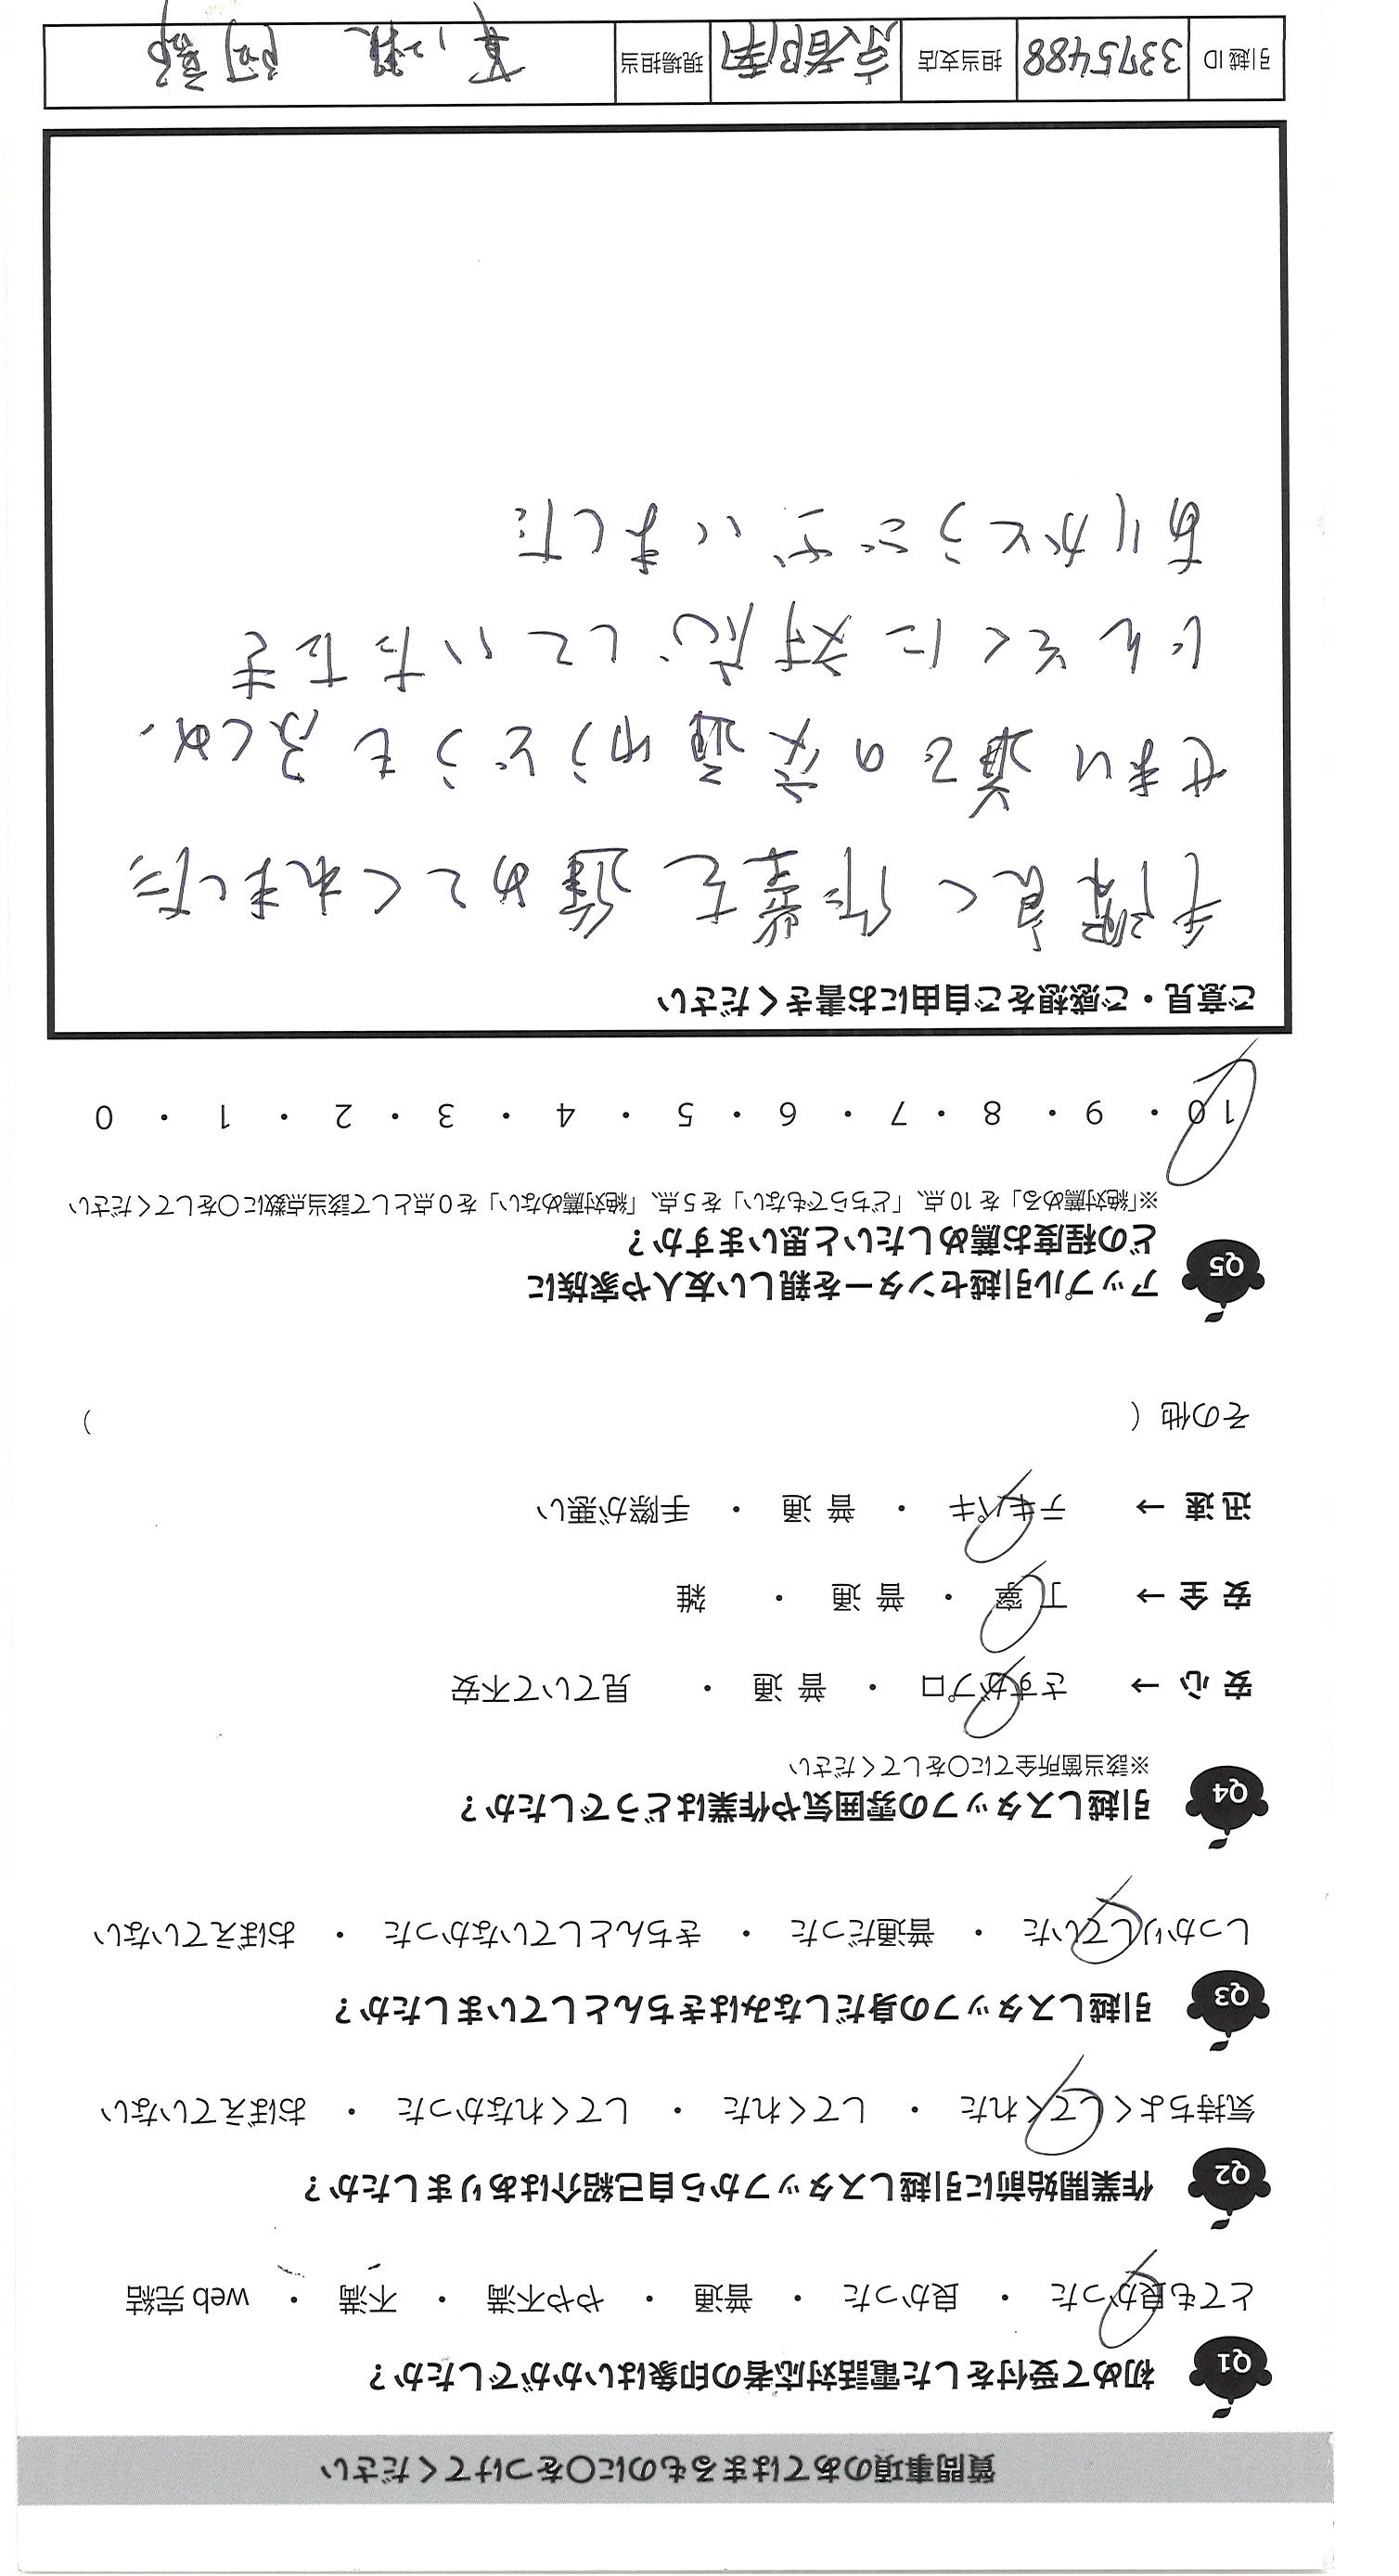 質問事項のあてはまるものに○をつけてください
Q1 初めて受付をした電話対応者の印象はいかがでしたか？
とても良かった ・ 良かった ・ 普通 ・ やや不満 ・ 不満 ・ web 完結
Q2 作業開始前に引越しスタッフから自己紹介はありましたか？
気持ちよくしてくれた ・ してくれた ・ してくれなかった ・ おぼえていない
Q3 引越しスタッフの身だしなみはきちんとしていましたか？
しっかりしていた ・ 普通だった ・ きちんとしていなかった ・ おぼえていない
Q4 引越しスタッフの雰囲気や作業はどうでしたか？
※該当箇所全てに○をしてください
安 心 → さすがプロ ・ 普 通 ・ 見ていて不安
安 全 → 丁 寧 ・ 普 通 ・ 雑
迅 速 → テキパキ ・ 普 通 ・ 手際が悪い
その他（ ）
Q5 アップル引越センターを親しい友人や家族に
どの程度お薦めしたいと思いますか？
※「絶対薦める」を 10 点、「どちらでもない」を 5 点、「絶対薦めない」を 0 点として該当点数に○をしてください
10 ・ 9 ・ 8 ・ 7 ・ 6 ・ 5 ・ 4 ・ 3 ・ 2 ・ 1 ・ 0
ご意見・ご感想をご自由にお書きください
手際良く作業を進めてくれました
せまい道での交通ゆうどうもふくめ、
じんそくに対応していただき
ありがとうございました
引越 ID 3375488 担当支店 京都南 現場担当 阿部